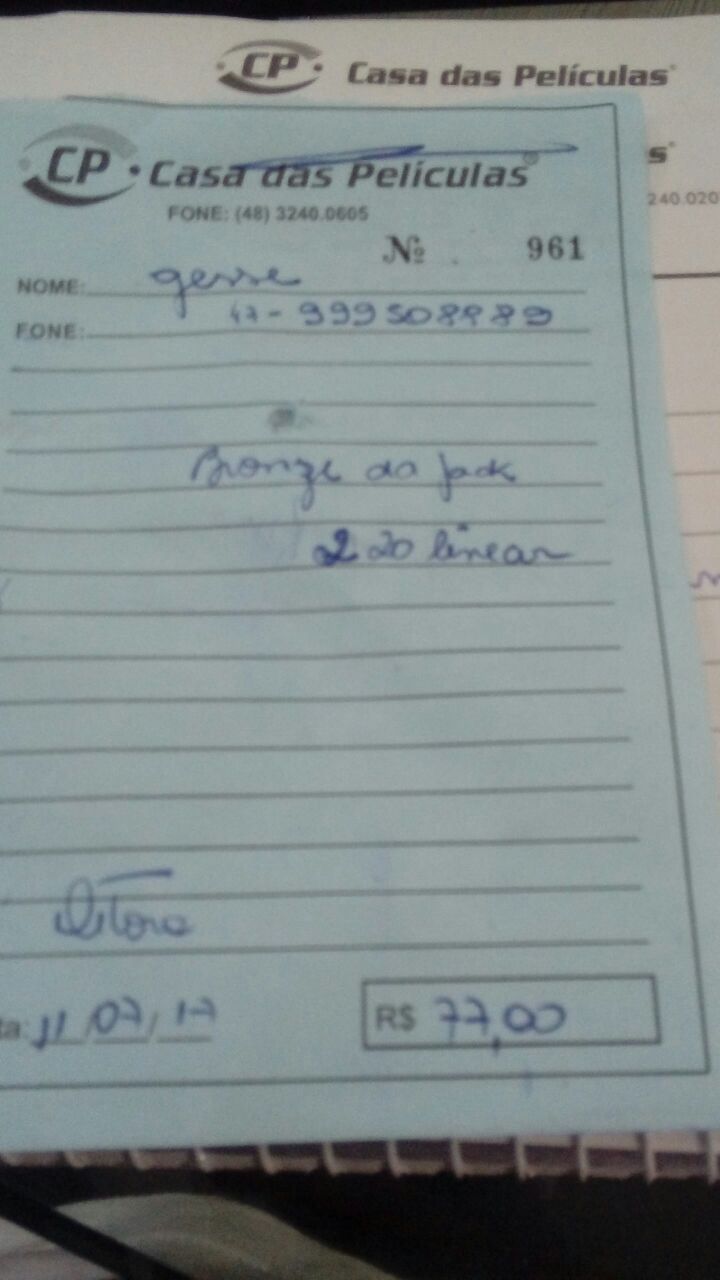 CP Casa das Películas
CP Casa das Películas®
FONE: (48) 3240.0605
240.020
Nº 961
NOME: gesse
FONE: 47-999508989
Bronze da jack
2 20 linear
ta: 11/07/17
R$ 77,00